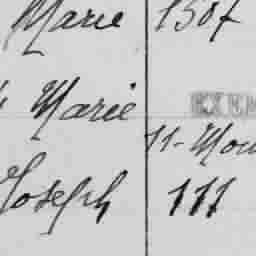 Marie 1507
Marie
11- Mou
Joseph 111